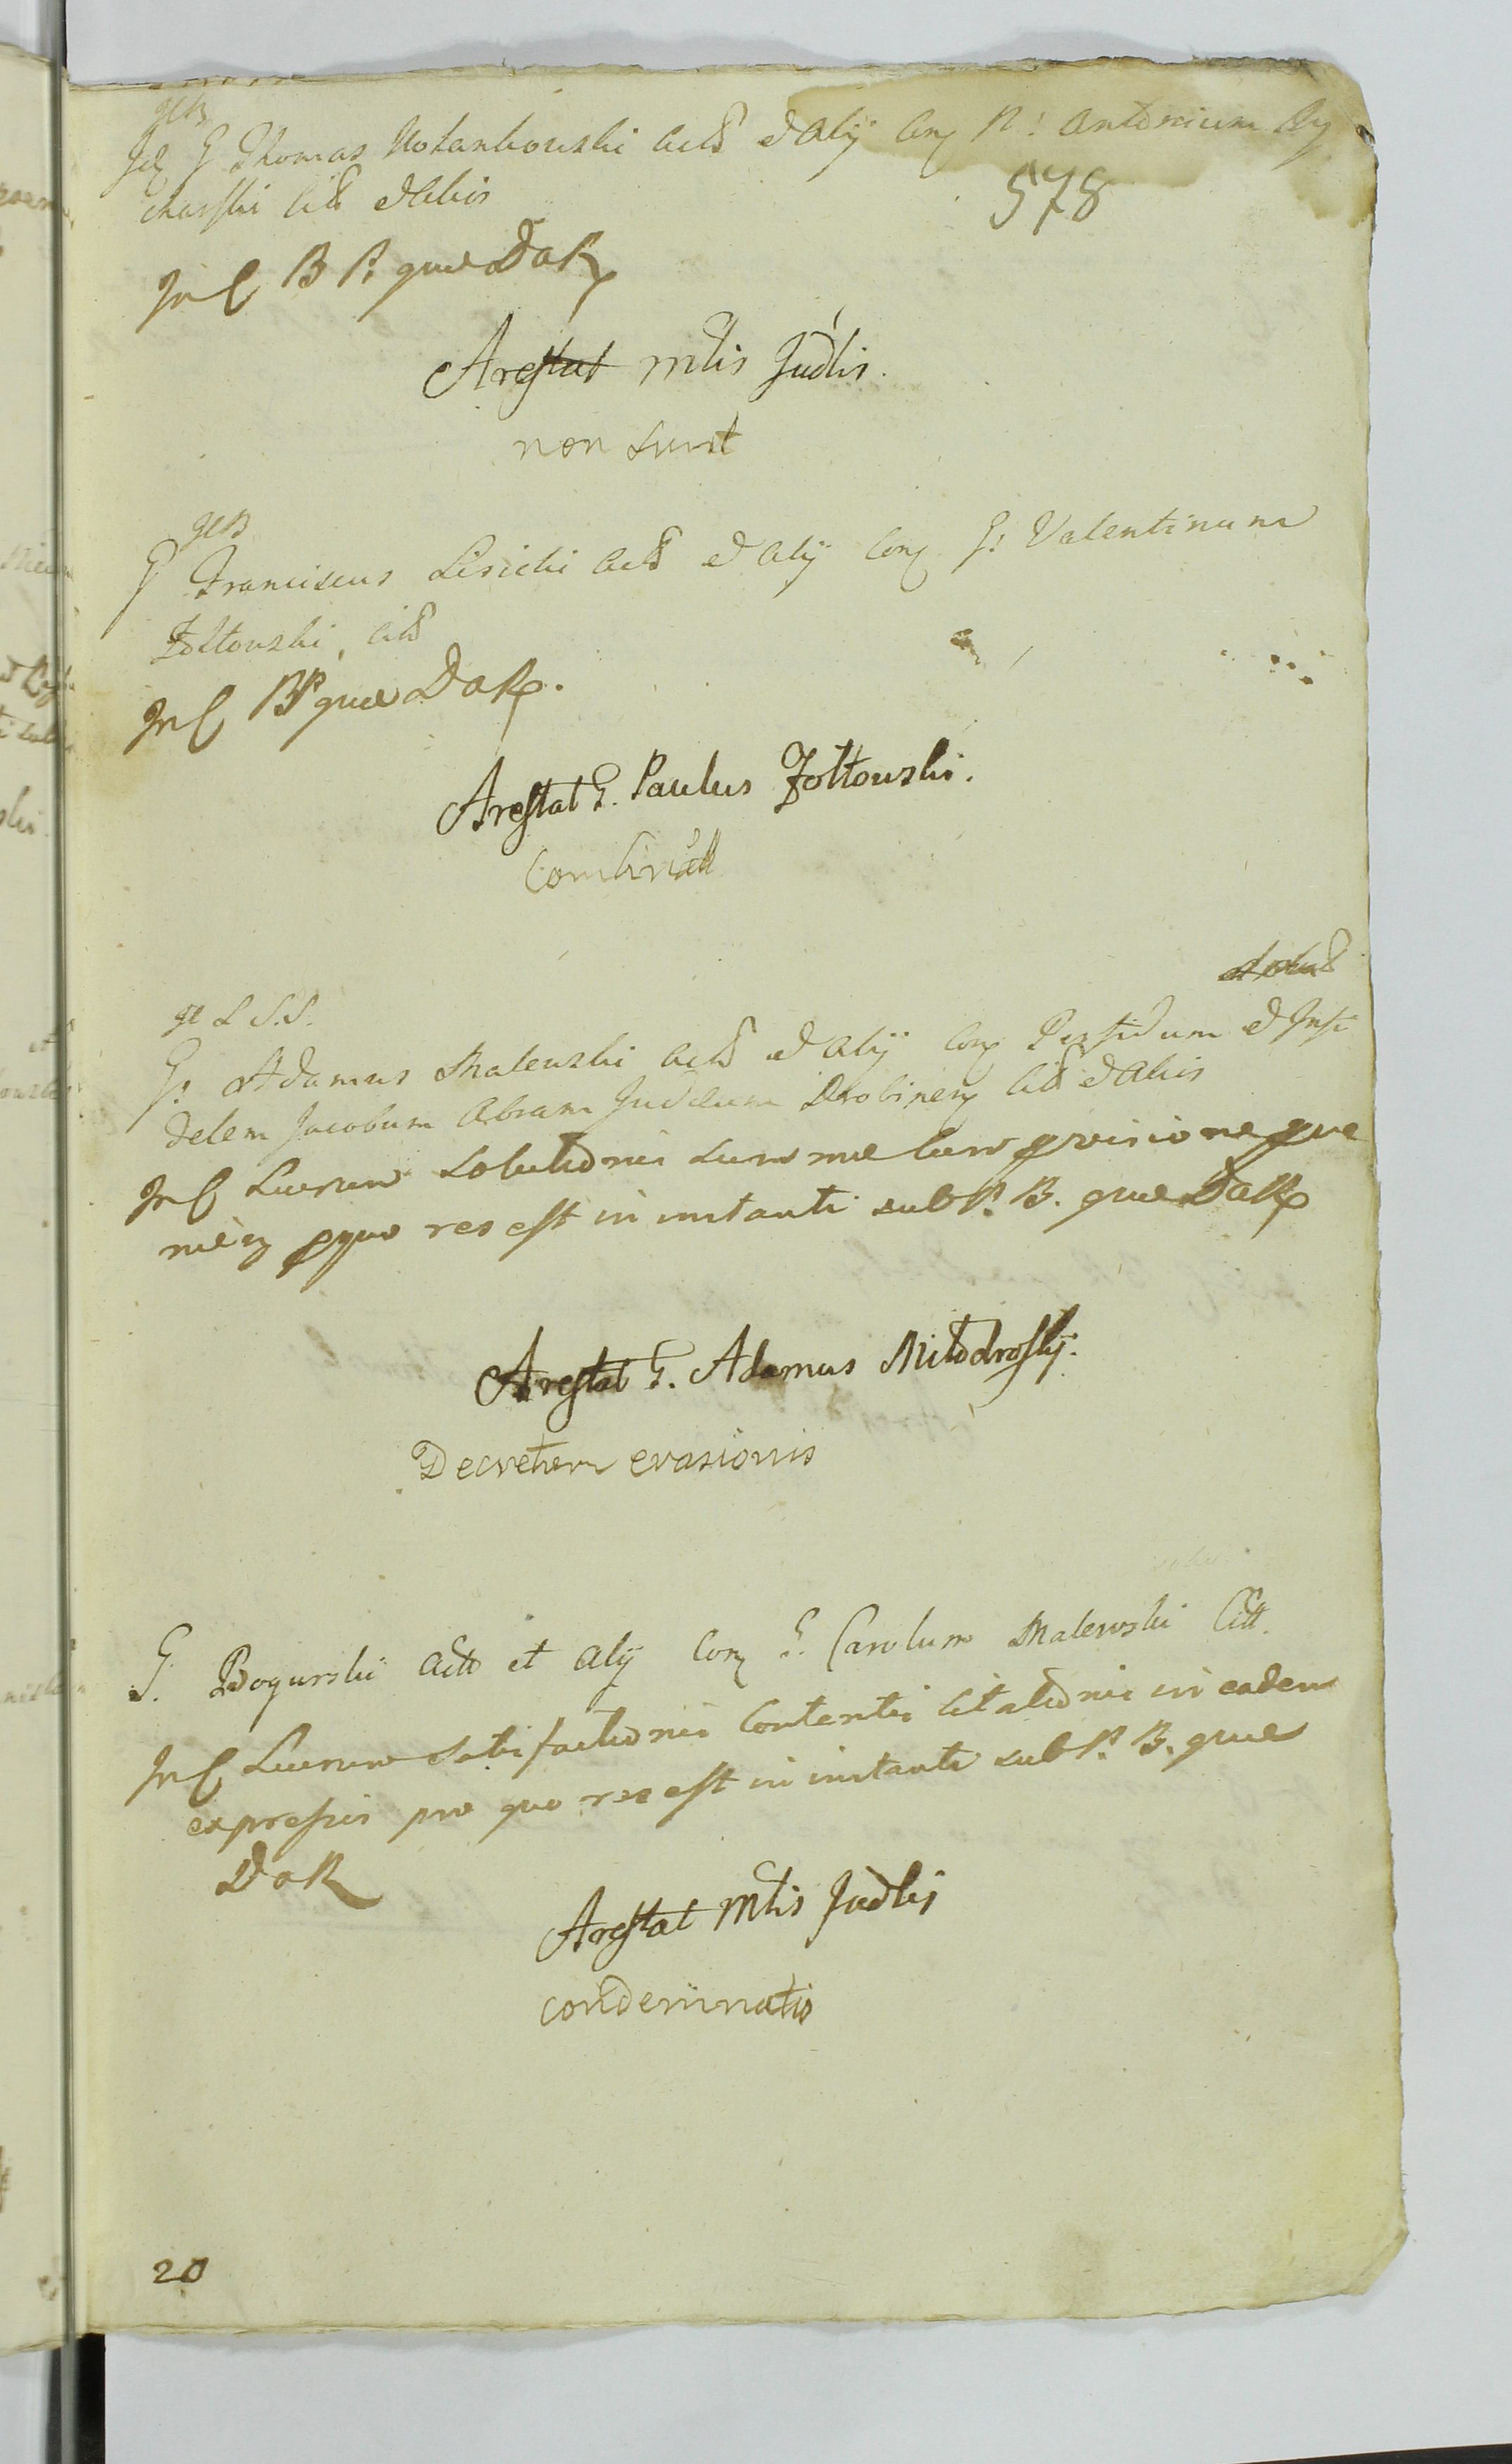 G Thomas Actt et Alij Con N: Antonium
Citt et Aliis
578
In C B P. quae DaR
Arestat Mlis Judlis.
non sunt
G Franciscus Lisicki Actt et Alij Con G: Valentinum
Zołtowski, Citt
In C BP quae DaR.
Arestat G. Paulus Zołtowski.
G: Adamus Malewski Actt et Alij Con Perfidum et Infi
delem Jacobum Abram Judæum Drobinen Citt et Aliis
In C Lucrum Solutionis Summae cum provisione
pro quo res est in instanti sub P. B. quae DaR
Arestat G. Adamus Miłodroski.
Decretum evasionis
G. Bogurski Actt et Alij Con G. Carolum Malewski Citt.
In C Lucrum Satisfactionis Contentis Citationis in eadem
expressis pro quo res est in instanti sub P. B. quae
DaR
Arestat Mlis Judlis
condemnatio
20